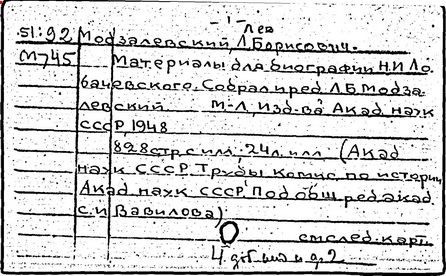 - 1 -
Лев
51:92 Модзалевский, Л. Борисович.
М745 Материалы для биографии Н.И.Ло-
бачевского. Собрал и ред. Л.Б.Модза-
левский. М-Л, Изд-во Акад. наук
СССР, 1948
828 стр. с илл. 24 л. илл. (Акад.
наук СССР. Труды Комис. по истории
Акад. наук СССР. Под общ. ред. акад.
С.И Вавилова)
см след. карт.